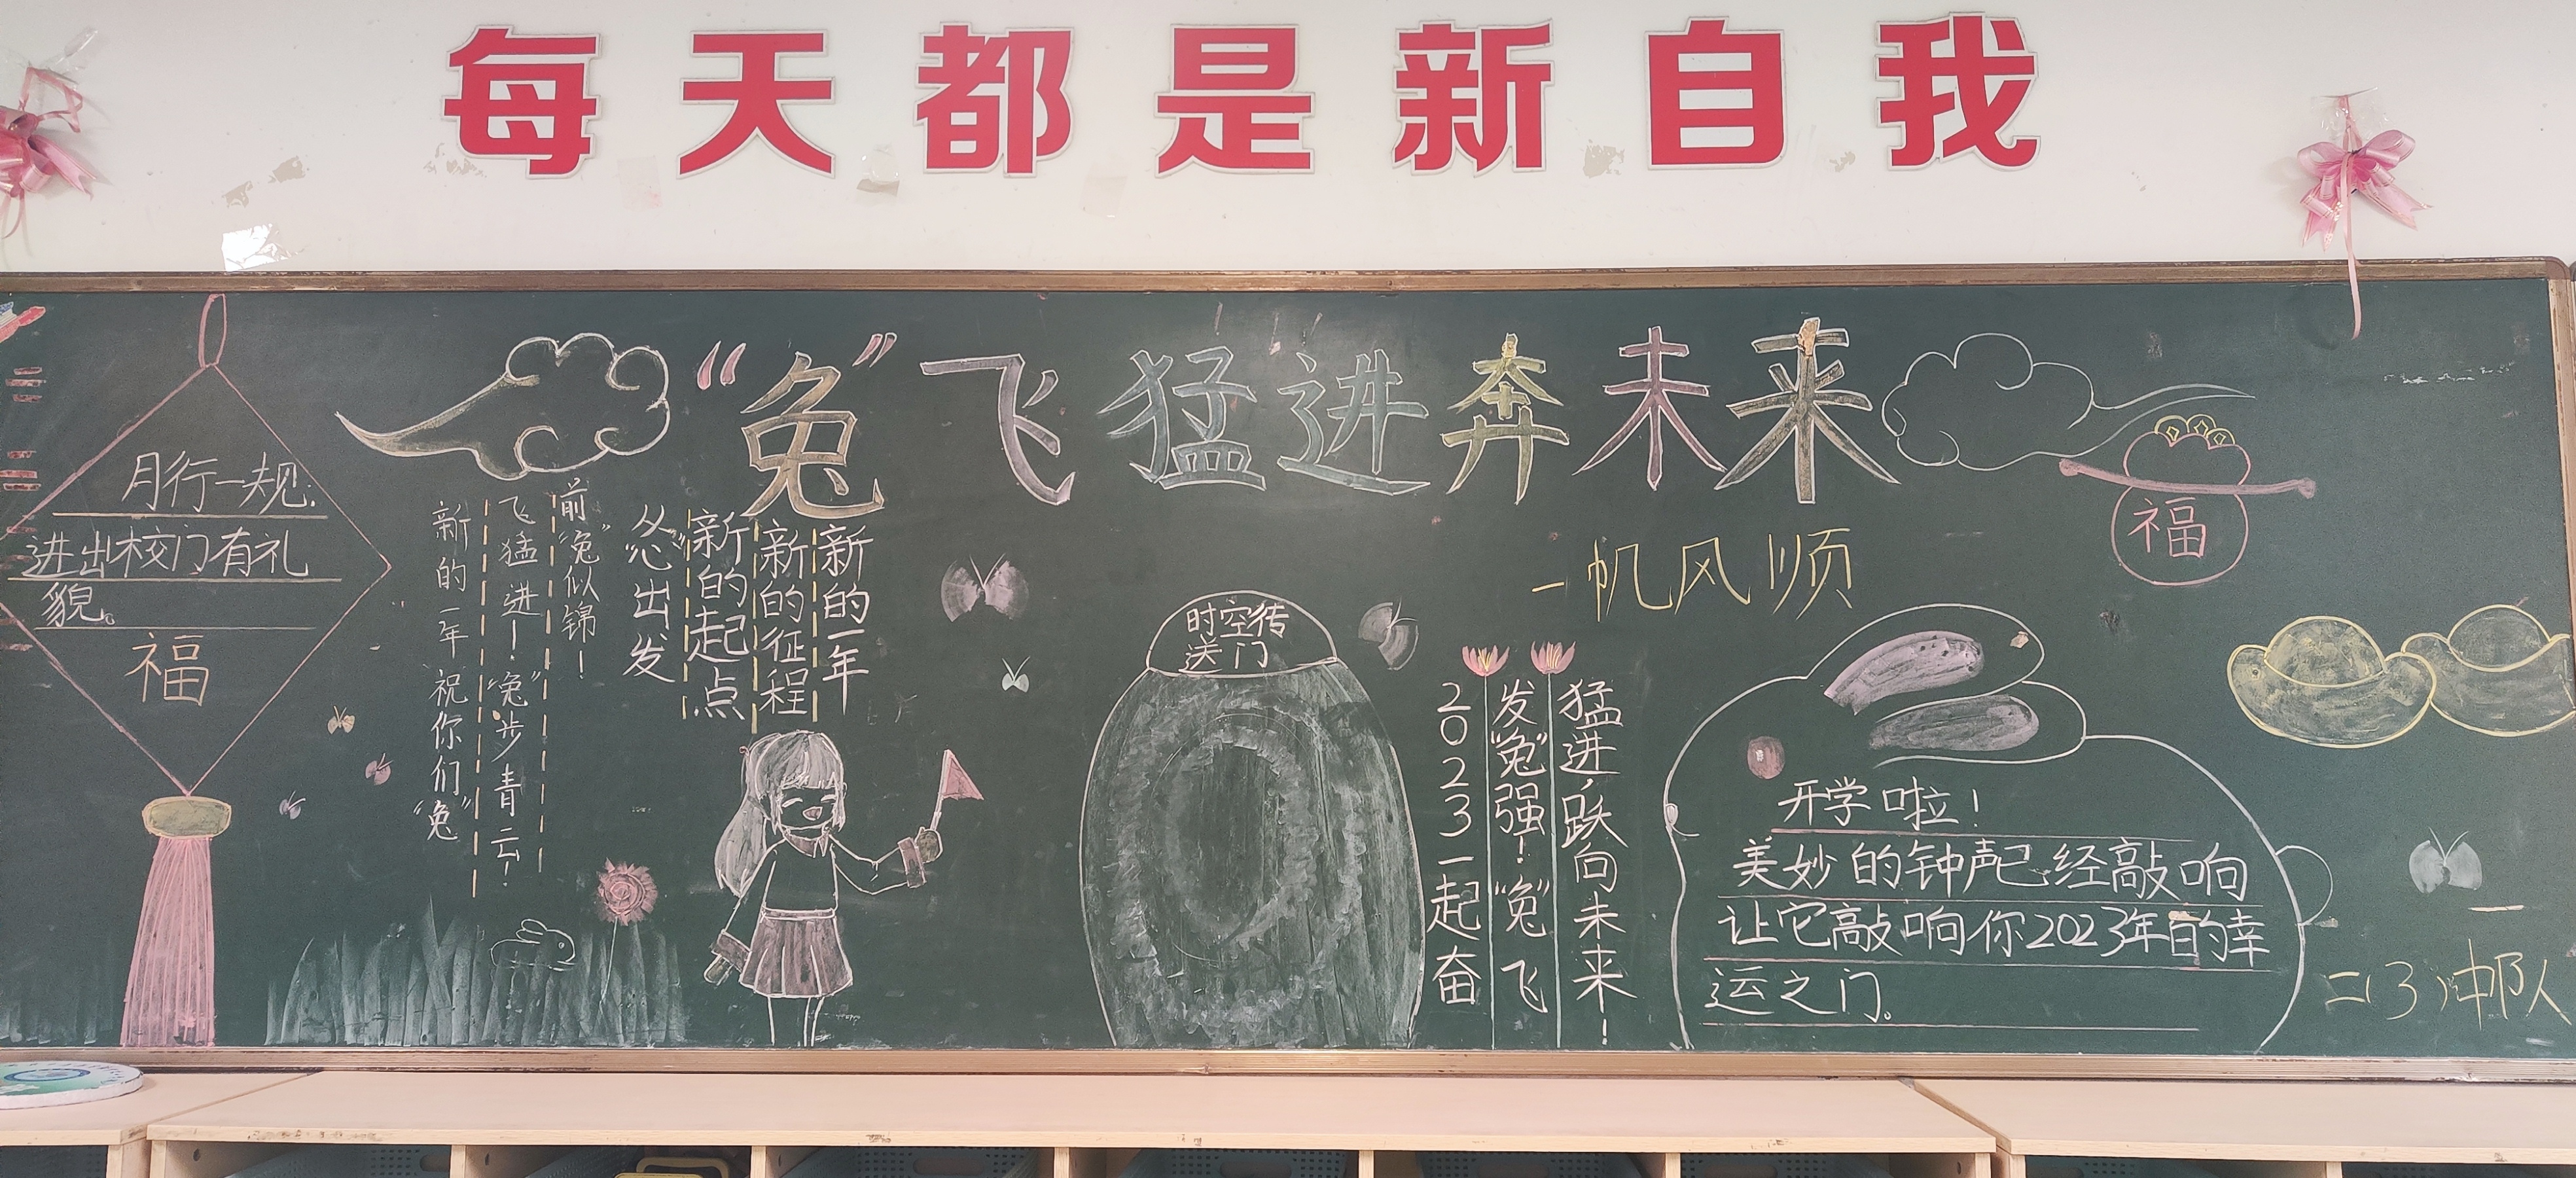 每天都是新自我
“兔”飞猛进奔未来
月行一规:
进出校门有礼
貌。
福
新的一年 祝你们“兔”
飞猛进！“兔”步青云！
前“兔”似锦！
新的一年
新的征程
新的起点
从“心”出发
时空传
送门
一帆风顺
福
2023一起奋
发“兔”强！“兔”飞
猛进,跃向未来！
开学啦！
美妙的钟声已经敲响
让它敲响你2023年的幸
运之门。
二(3)中队